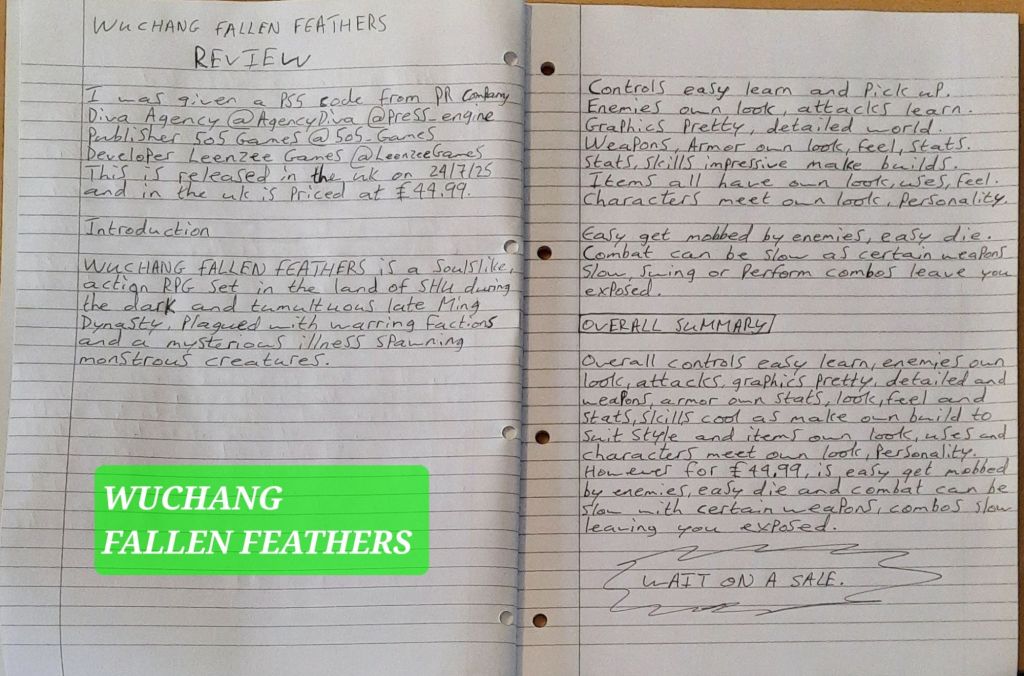 WUCHANG FALLEN FEATHERS
REVIEW
I was given a PS5 code from PR Company
Diva Agency @AgencyDiva @Press_engine
Publisher 505 Games @505_Games
Developer Leenzee Games @LeenzeeGames
This is released in the uk on 24/7/25
and in the uk is priced at £44.99.
Introduction
WUCHANG FALLEN FEATHERS is a Soulslike,
action RPG set in the land of SHU during
the dark and tumultuous late Ming
Dynasty, Plagued with warring factions
and a mysterious illness spawning
monstrous creatures.
WUCHANG
FALLEN FEATHERS
Controls easy learn and Pick up.
Enemies own look, attacks learn.
Graphics Pretty, detailed world.
Weapons, Armor own look, feel, stats.
Stats, Skills impressive make builds.
Items all have own look, uses, feel.
Characters meet own look, Personality.
Easy get mobbed by enemies, easy die.
Combat can be slow as certain weapons
slow, swing or Perform combos leave you
exposed.
OVERALL SUMMARY
Overall controls easy learn, enemies own
look, attacks, graphics Pretty, detailed and
weapons, armor own stats, look, feel and
stats, skills cool as make own build to
suit style and items own look, uses and
characters meet own look, Personality.
However for £44.99, is easy get mobbed
by enemies, easy die and combat can be
slow with certain weapons, combos slow
leaving you exposed.
WAIT ON A SALE.